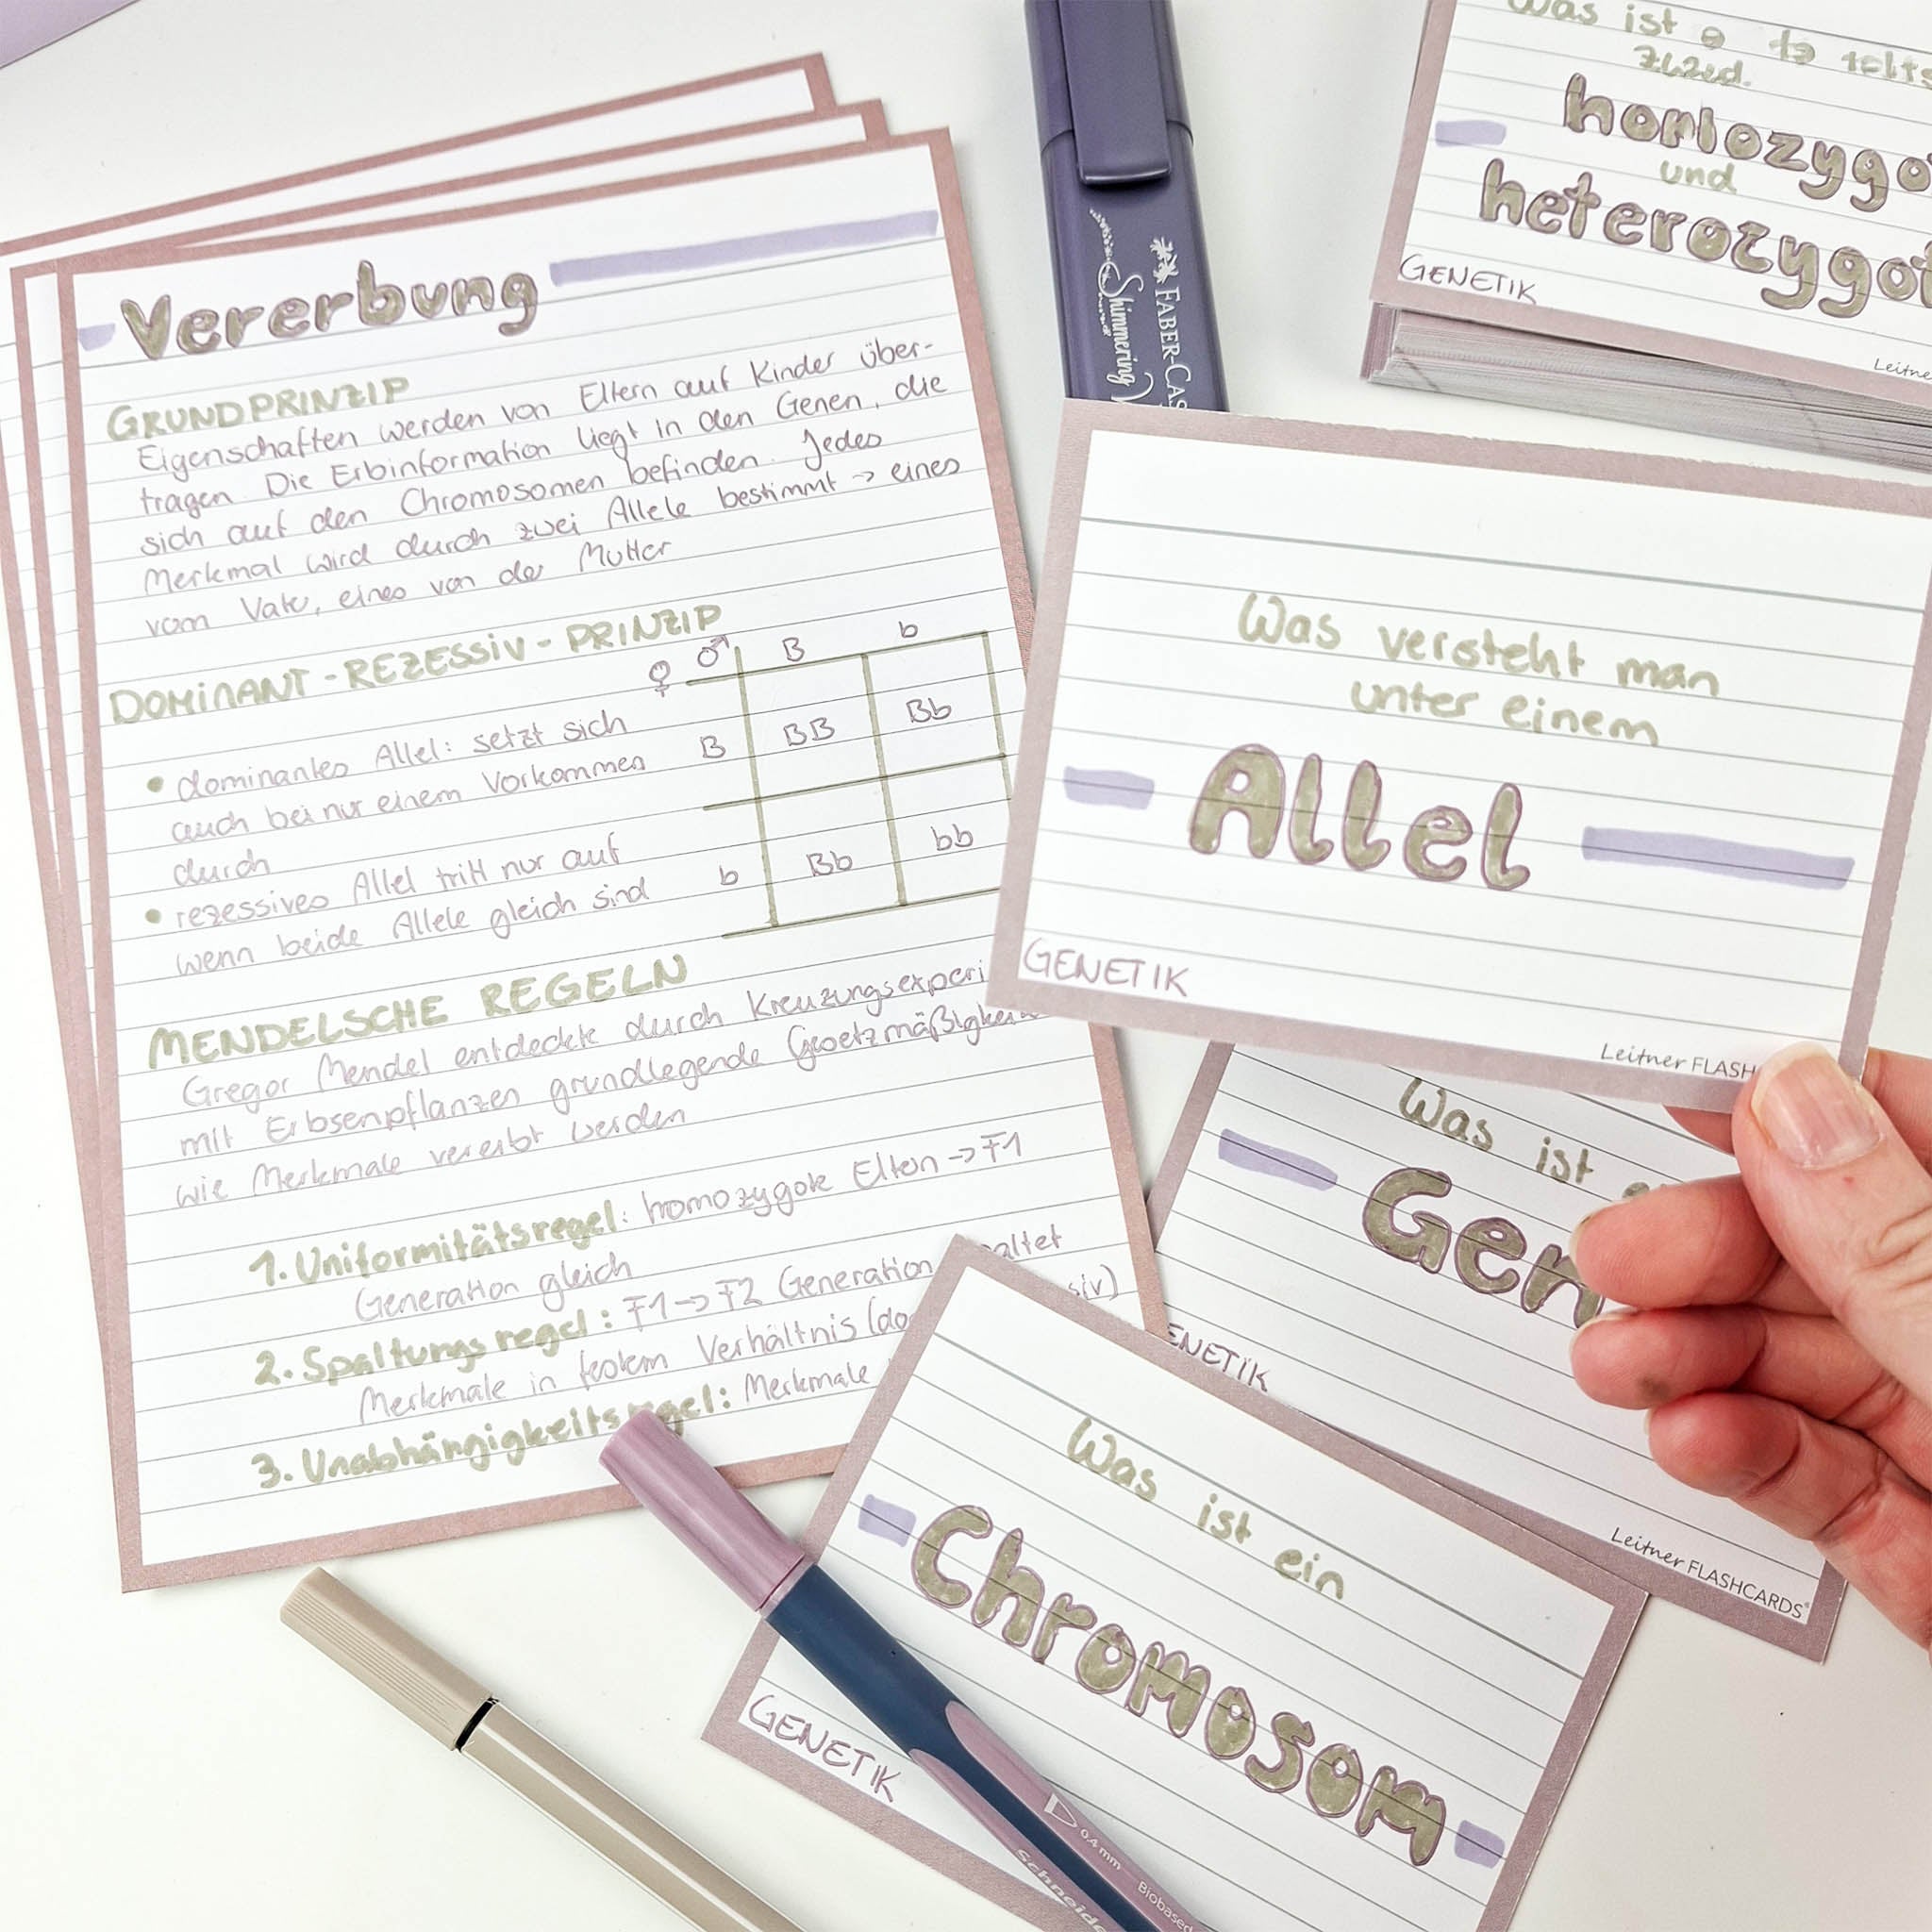 Vererbung
GRUNDPRINZIP
Eigenschaften werden von Eltern auf Kinder über-
tragen. Die Erbinformation liegt in den Genen, die
sich auf den Chromosomen befinden. Jedes
Merkmal wird durch zwei Allele bestimmt → eines
vom Vater, eines von der Mutter
DOMINANT-REZESSIV-PRINZIP
♀ ♂ B b
B BB Bb
b Bb bb
• dominantes Allel: setzt sich
auch bei nur einem Vorkommen
durch
• rezessives Allel tritt nur auf
wenn beide Allele gleich sind
MENDELSCHE REGELN
Gregor Mendel entdeckte durch Kreuzungsexperi
mit Erbsenpflanzen grundlegende Gesetzmäßigkei
wie Merkmale vererbt werden
1. Uniformitätsregel: homozygote Eltern → F1
Generation gleich
2. Spaltungsregel: F1 → F2 Generation altet
Merkmale in festem Verhältnis (do siv)
3. Unabhängigkeitsregel: Merkmale
FABER-CAS
Shimmering
Was ist
und
heterozygot
GENETIK
Leitne
Was versteht man
unter einem
Allel
GENETIK
Leitner FLASH
Was ist
Gen
ENETIK
Leitner FLASHCARDS®
Was ist ein
Chromosom
GENETIK
0.4 mm
Biobased
Schneide